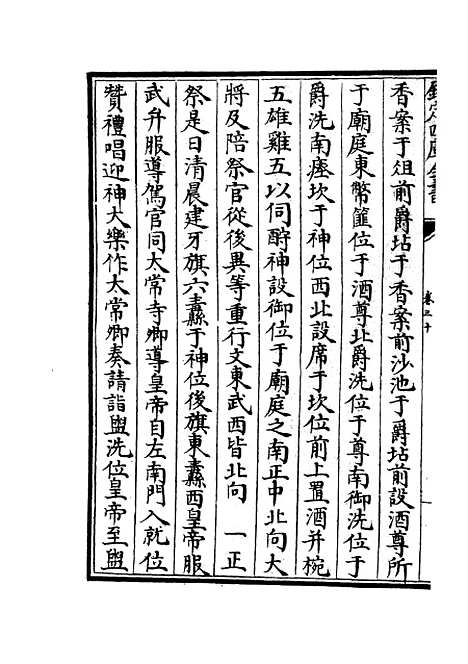 欽定四庫全書
卷三十
香案于俎前爵坫于香案前沙池于爵坫前設酒尊所
于廟庭東幣篚位于酒尊北爵洗位于尊南御洗位于
爵洗南瘞坎于神位西北設席于坎位前上置酒并椀
五雄雞五以伺酹神設御位于廟庭之南正中北向大
將及陪祭官從後異等重行文東武西皆北向　一正
祭是日清晨建牙旗六纛于神位後旗東纛西皇帝服
武弁服導駕官同太常寺卿導皇帝自左南門入就位
贊禮唱迎神大樂作太常卿奏請詣盥洗位皇帝至盥